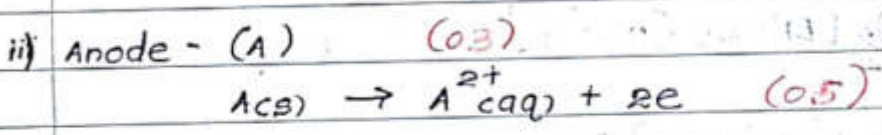 ii) Anode - (A) (03)
A(s) → A²⁺(aq) + 2e (0.5)